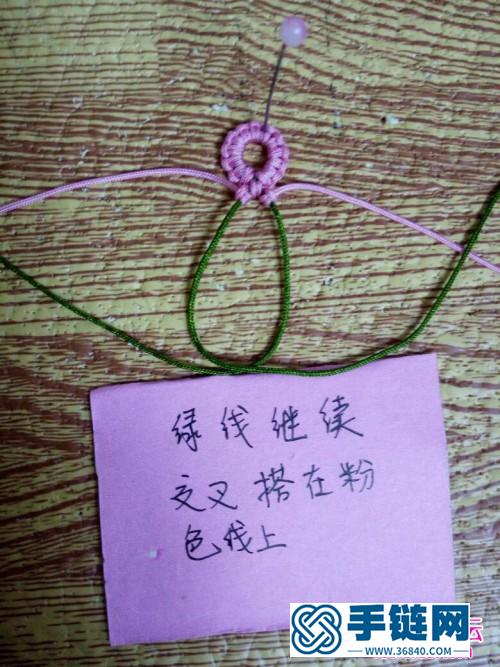 绿线继续
交叉搭在粉
色线上
手链网
WWW.36840.COM